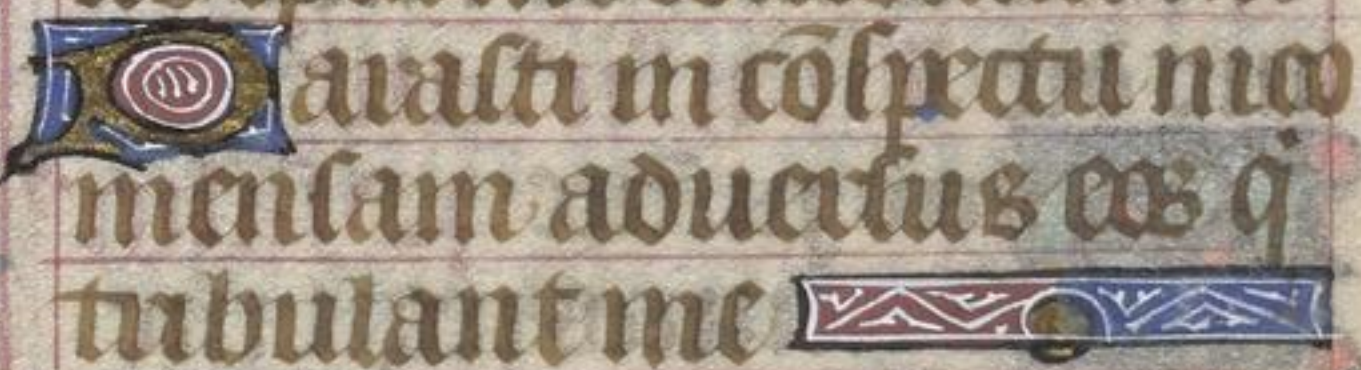 Parasti in cōspectu meo
mensam aduersus eos qͥ
tribulant me